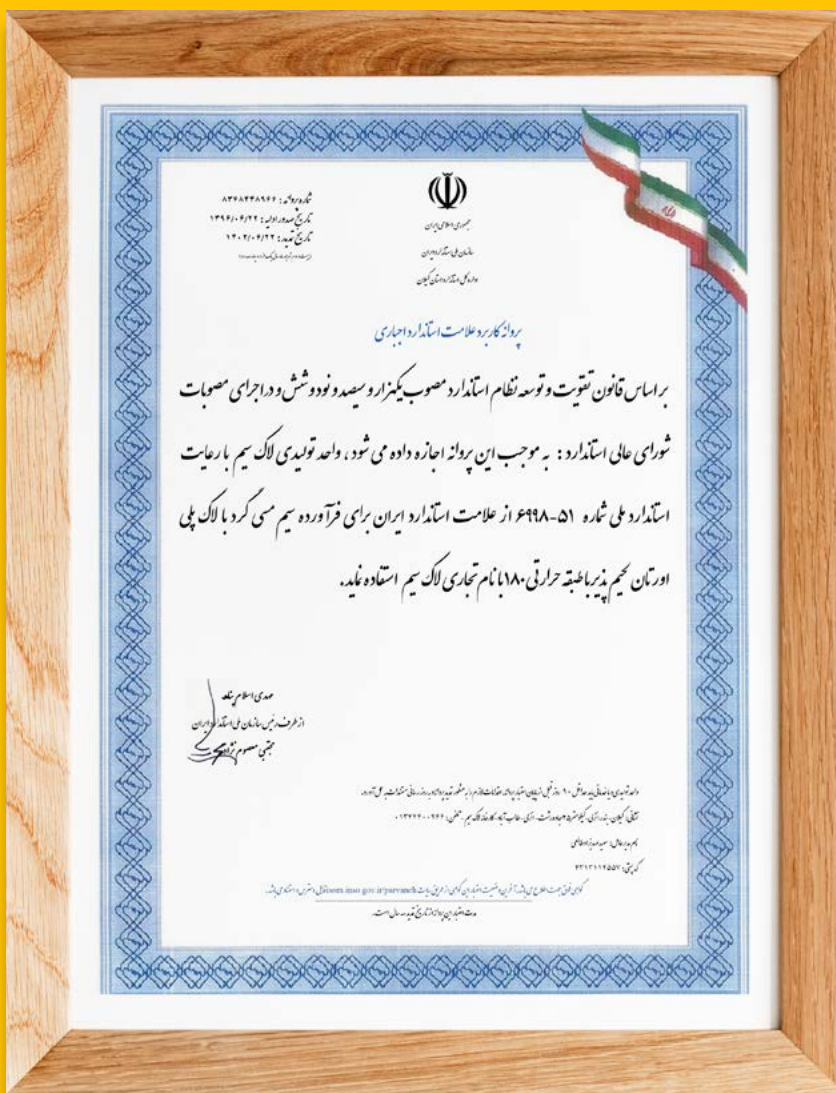 شماره پروانه: ۸۳۶۸۴۴۸۹۶۶
تاریخ صدور اولیه: ۱۳۹۶/۰۶/۲۲
تاریخ تمدید: ۱۴۰۲/۰۶/۲۲
جمهوری اسلامی ایران
سازمان ملی استاندارد ایران
اداره کل استاندارد استان گیلان
پروانه کاربرد علامت استاندارد اجباری
بر اساس قانون تقویت و توسعه نظام استاندارد مصوب یکهزار و سیصد و نود و شش و در اجرای مصوبات
شورای عالی استاندارد : به موجب این پروانه اجازه داده می شود ، واحد تولیدی لاک سیم با رعایت
استاندارد ملی شماره ۵۱-۶۹۹۸ از علامت استاندارد ایران برای فرآورده سیم مسی گرد با لاک پلی
اورتان لحیم پذیر با طبقه حرارتی ۱۸۰ با نام تجاری لاک سیم استفاده نماید.
مهدی اسلام پناه
از طرف رئیس سازمان ملی استاندارد ایران
مجتبی معصوم نژاد
واحد تولیدی و یا خدماتی باید حداقل ۹۰ روز قبل از پایان اعتبار پروانه، اقدامات لازم را به منظور تمدید پروانه و به روز رسانی مستندات به عمل آورد.
نشانی: گیلان، بندر انزلی، کیلومتر جاده رشت - انزلی - طالب آباد - کارخانه لاک سیم - تلفن:
نام مدیر عامل:
کد پستی: ۴۳۱۳۱۱۴۵۵۷
گواهی فوق جهت اطلاع می باشد. آخرین وضعیت اعتبار این گواهی از طریق سایت isom.inso.gov.ir/parvaneh قابل دسترس و استناد می باشد.
مدت اعتبار این پروانه از تاریخ تمدید سه سال است.